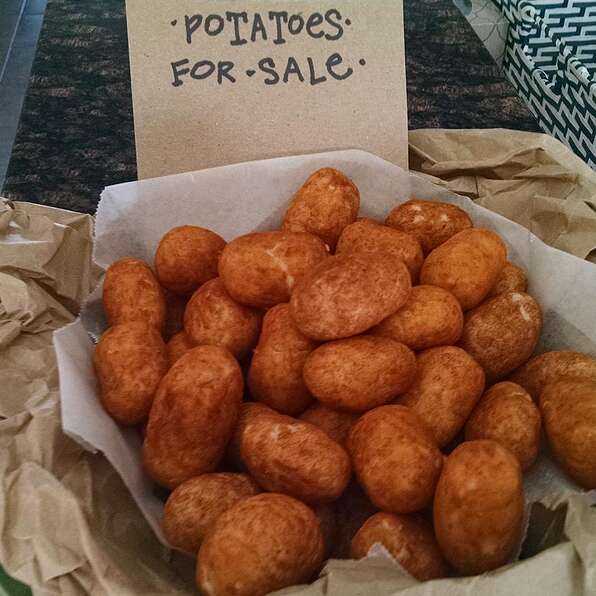 ·POTATOES·
FOR·SALE·